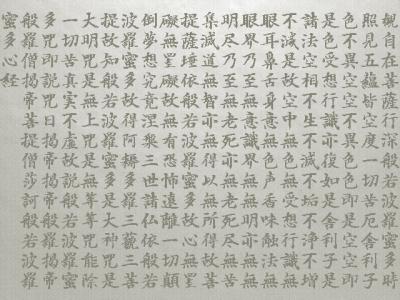 觀自在菩薩行深般若波羅蜜多時
照見五蘊皆空度一切苦厄舍利子
色不異空空不異色色即是空空即
是色受想行識亦復如是舍利子是
諸法空相不生不滅不垢不淨不增
不減是故空中無色無受想行識無
眼耳鼻舌身意無色聲香味觸法無
眼界乃至無意識界無無明亦無無
明盡乃至無老死亦無老死盡無苦
集滅道無智亦無得以無所得故菩
提薩埵依般若波羅蜜多故心無罣
礙無罣礙故無有恐怖遠離一切顛
倒夢想究竟涅槃三世諸仏依般若
波羅蜜多故得阿耨多羅三藐三菩
提故知般若波羅蜜多是大神咒是
大明咒是無上咒是無等等咒能除
一切苦真實不虛故說般若波羅蜜
多咒即說咒曰揭帝揭帝般羅揭帝
般羅僧揭帝菩提僧莎訶般若波羅
蜜多心經